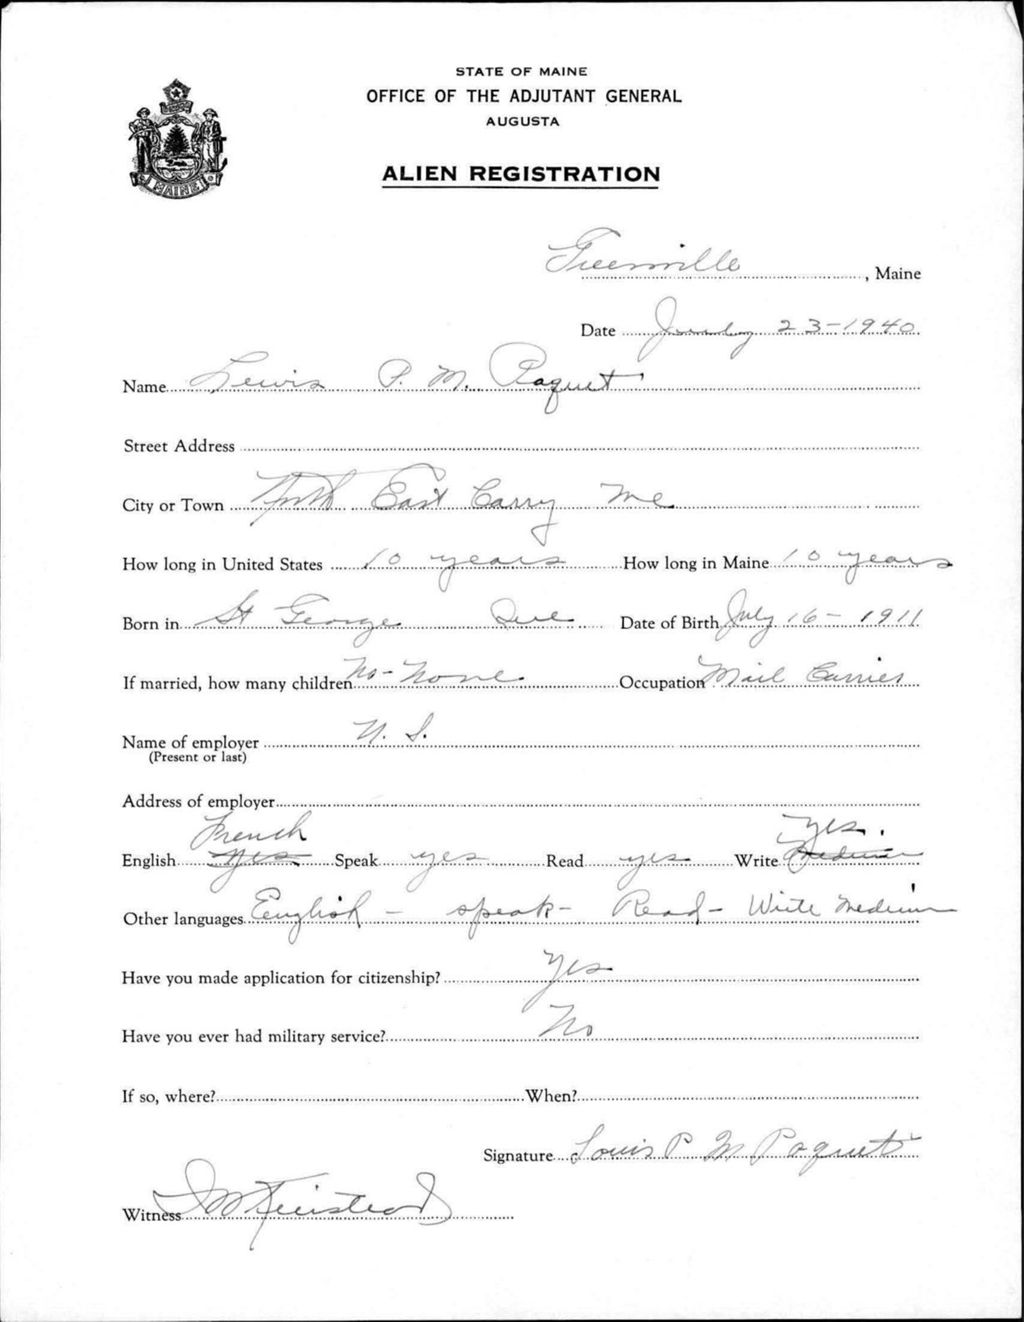 STATE OF MAINE
OFFICE OF THE ADJUTANT GENERAL
AUGUSTA
ALIEN REGISTRATION
MAINE
Greenville, Maine
Date July 23-1940
Name Lewis P. M. Paquet
Street Address
City or Town North East Carry Me
How long in United States 10 years How long in Maine 10 years
Born in St George Que Date of Birth July 16-1911
If married, how many children No-None Occupation Mail Carrier
Name of employer
(Present or last)
Address of employer
French Yes.
English Yes Speak yes Read yes Write Medium
Other languages English - speak - Read - Write Medium
Have you made application for citizenship? Yes
Have you ever had military service? No
If so, where? When?
Signature Louis P M Paquet
Witness